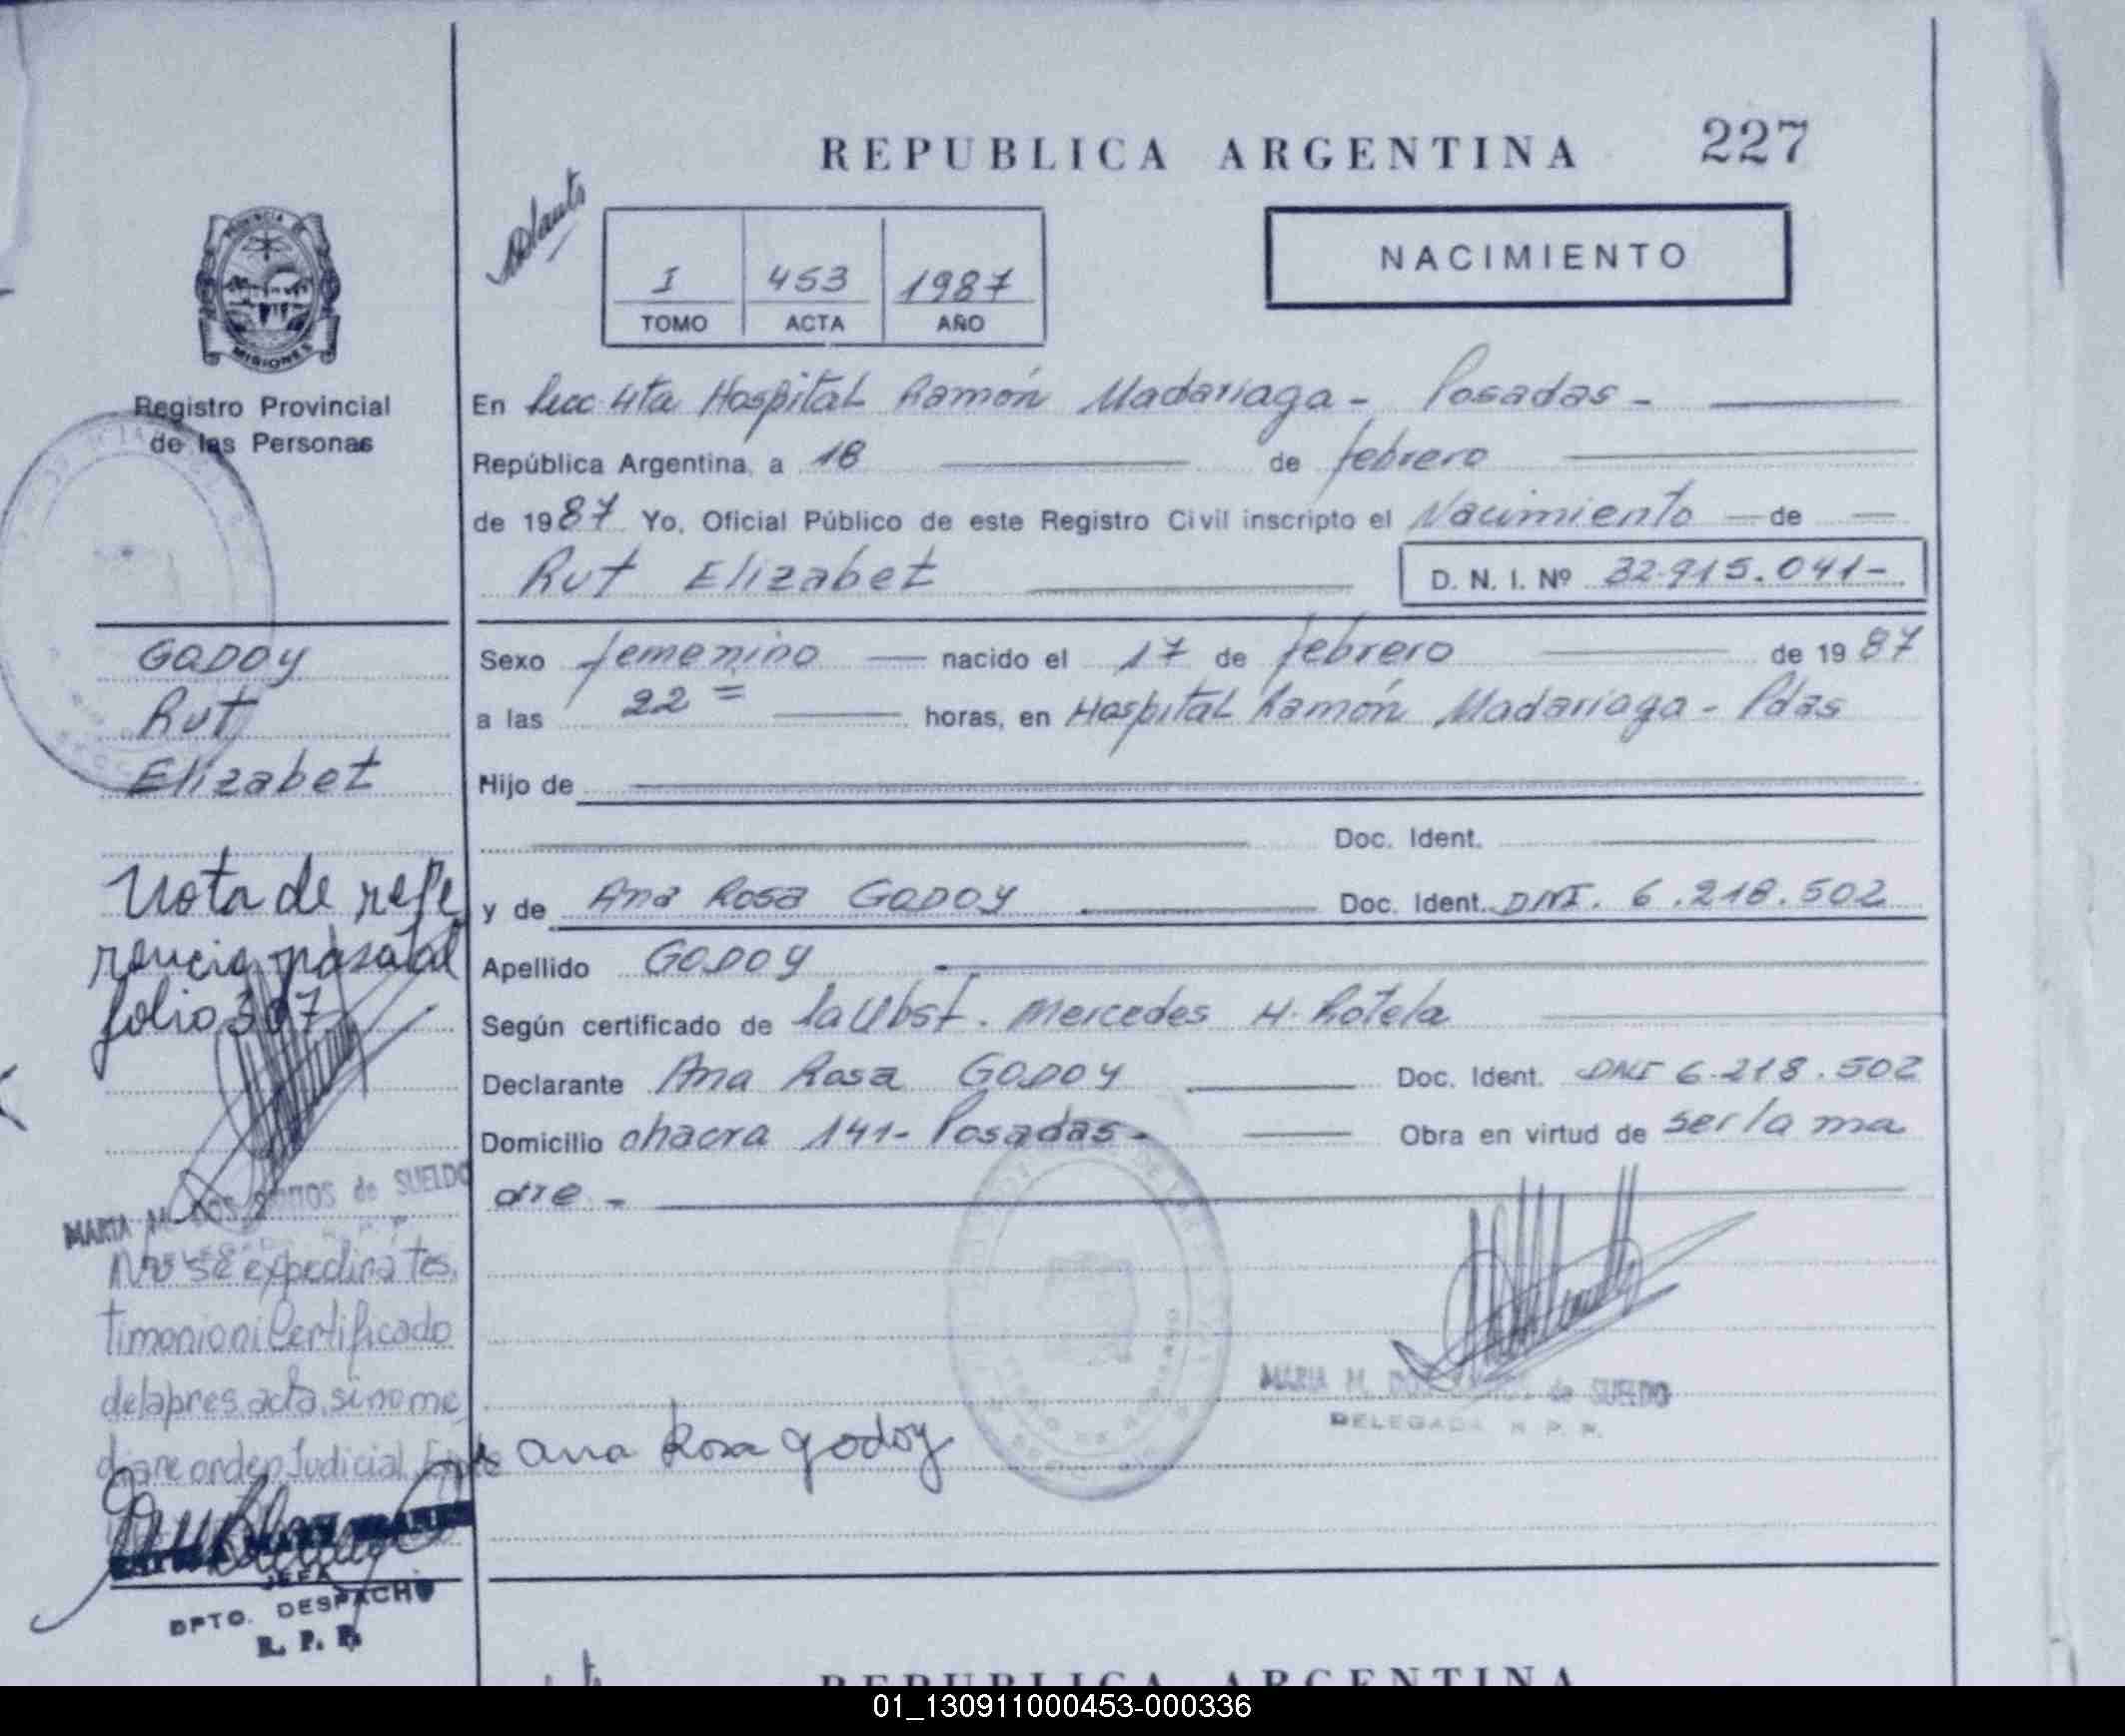 REPUBLICA ARGENTINA
227
NACIMIENTO
I
453
1987
TOMO
ACTA
AÑO
PROVINCIA
MISIONES
Registro Provincial
de las Personas
En Secc 4ta Hospital Ramón Madariaga - Posadas -
República Argentina, a 18 de febrero
de 1987 Yo, Oficial Público de este Registro Civil inscripto el Nacimiento de
Rut Elizabet
D. N. I. Nº 32.915.041-
GODOY
Rut
Elizabet
Sexo femenino nacido el 17 de febrero de 1987
a las 22 = horas, en Hospital Ramón Madariaga - Pdas
Hijo de
Doc. Ident.
y de Ana Rosa GODOY Doc. Ident. DNI. 6.218.502
Apellido GODOY
Según certificado de la Obst. Mercedes H. Rotela
Declarante Ana Rosa GODOY Doc. Ident. DNI 6.218.502
Domicilio chacra 141- Posadas- Obra en virtud de ser la ma
dre -
Nota de refe
rencia pasa al
folio 307
MARIA M. DOS SANTOS de SUELDO
No se expedira tes
timonio ni Certificado
de la pres. acta, si no me
diare orden Judicial.
JEFA
DPTO. DESPACHO
R. P. P.
MARIA M. DOS SANTOS de SUELDO
DELEGADA R. P. P.
Ana Rosa godoy
REPUBLICA ARGENTINA
01_130911000453-000336